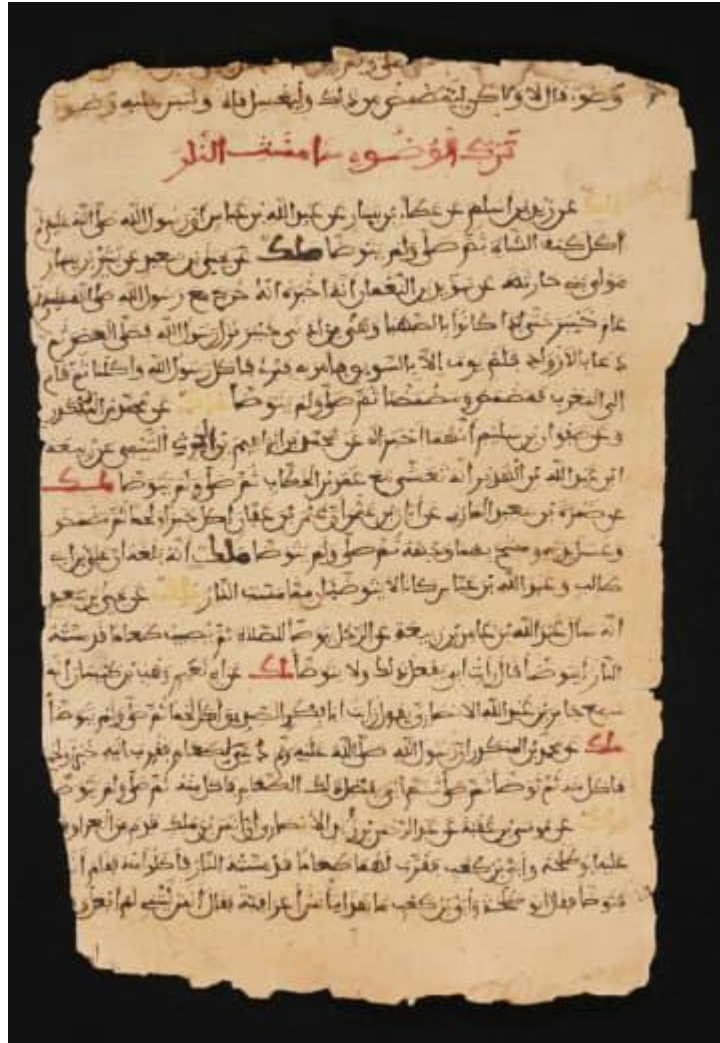 وضوء قال لا ولاكن ليتمضمض من ذلك وليغسل فاه وليس عليه وضوء
ترك الوضوء مما مست النار
عن زيد بن اسلم عن عطاء بن يسار عن عبد الله بن عباس ان رسول الله صلى الله عليه
اكل كتف الشاة ثم صلى ولم يتوضأ ملك عن يحيى بن سعيد عن بشير بن يسار
مولى بني حارثة عن سويد بن النعمان انه اخبره انه خرج مع رسول الله صلى الله عليه
عام خيبر حتى اذا كانوا بالصهبا وهي من ادنى خيبر نزل رسول الله فصلى العصر ثم
دعا بالازواد فلم يوت الا بالسويق فامر به فثري فاكل رسول الله واكلنا ثم قام
الى المغرب فمضمض ومضمضنا ثم صلى ولم يتوضأ ملك عن محمد بن المنكدر
وعن صفوان بن سليم انهما اخبراه عن محمد بن ابراهيم بن الحرث التيمي عن ربيعة
ابن عبد الله بن الهدير انه تعشى مع عمر بن الخطاب ثم صلى ولم يتوضأ ملك
عن ضمرة بن سعيد المازني عن ابان بن عثمان ان عثمن بن عفان اكل خبزا ولحما ثم مضمض
وغسل يديه ومسح بهما وجهه ثم صلى ولم يتوضأ ملك انه بلغه ان علي بن ابي
طالب وعبد الله بن عباس كانا لا يتوضيان مما مست النار ملك عن يحيى بن سعيد
انه سال عبد الله بن عامر بن ربيعة عن الرجل يتوضأ للصلاة ثم يصيب طعاما قد مسته
النار ايتوضأ قال رايت ابي يفعل ذلك ولا يتوضأ ملك عن ابي نعيم وهب بن كيسان انه
سمع جابر بن عبد الله الانصاري يقول رايت ابا بكر الصديق اكل لحما ثم صلى ولم يتوضأ
ملك عن محمد بن المنكدر ان رسول الله صلى الله عليه وسلم دعي لطعام فقرب اليه خبز ولحم
فاكل منه ثم توضأ ثم صلى ثم اتي بفضل ذلك الطعام فاكل منه ثم صلى ولم يتوضأ
عن موسى بن عقبة عن عبد الرحمن بن زيد الانصاري ان انس بن ملك قدم من العراق
عليه ابو طلحة وابي بن كعب فقرب لهما طعاما قد مسته النار فاكلوا منه فقام انس
فتوضأ فقال ابو طلحة وابي بن كعب ما هذا يا انس اعراقية فقال انس ليتني لم افعل